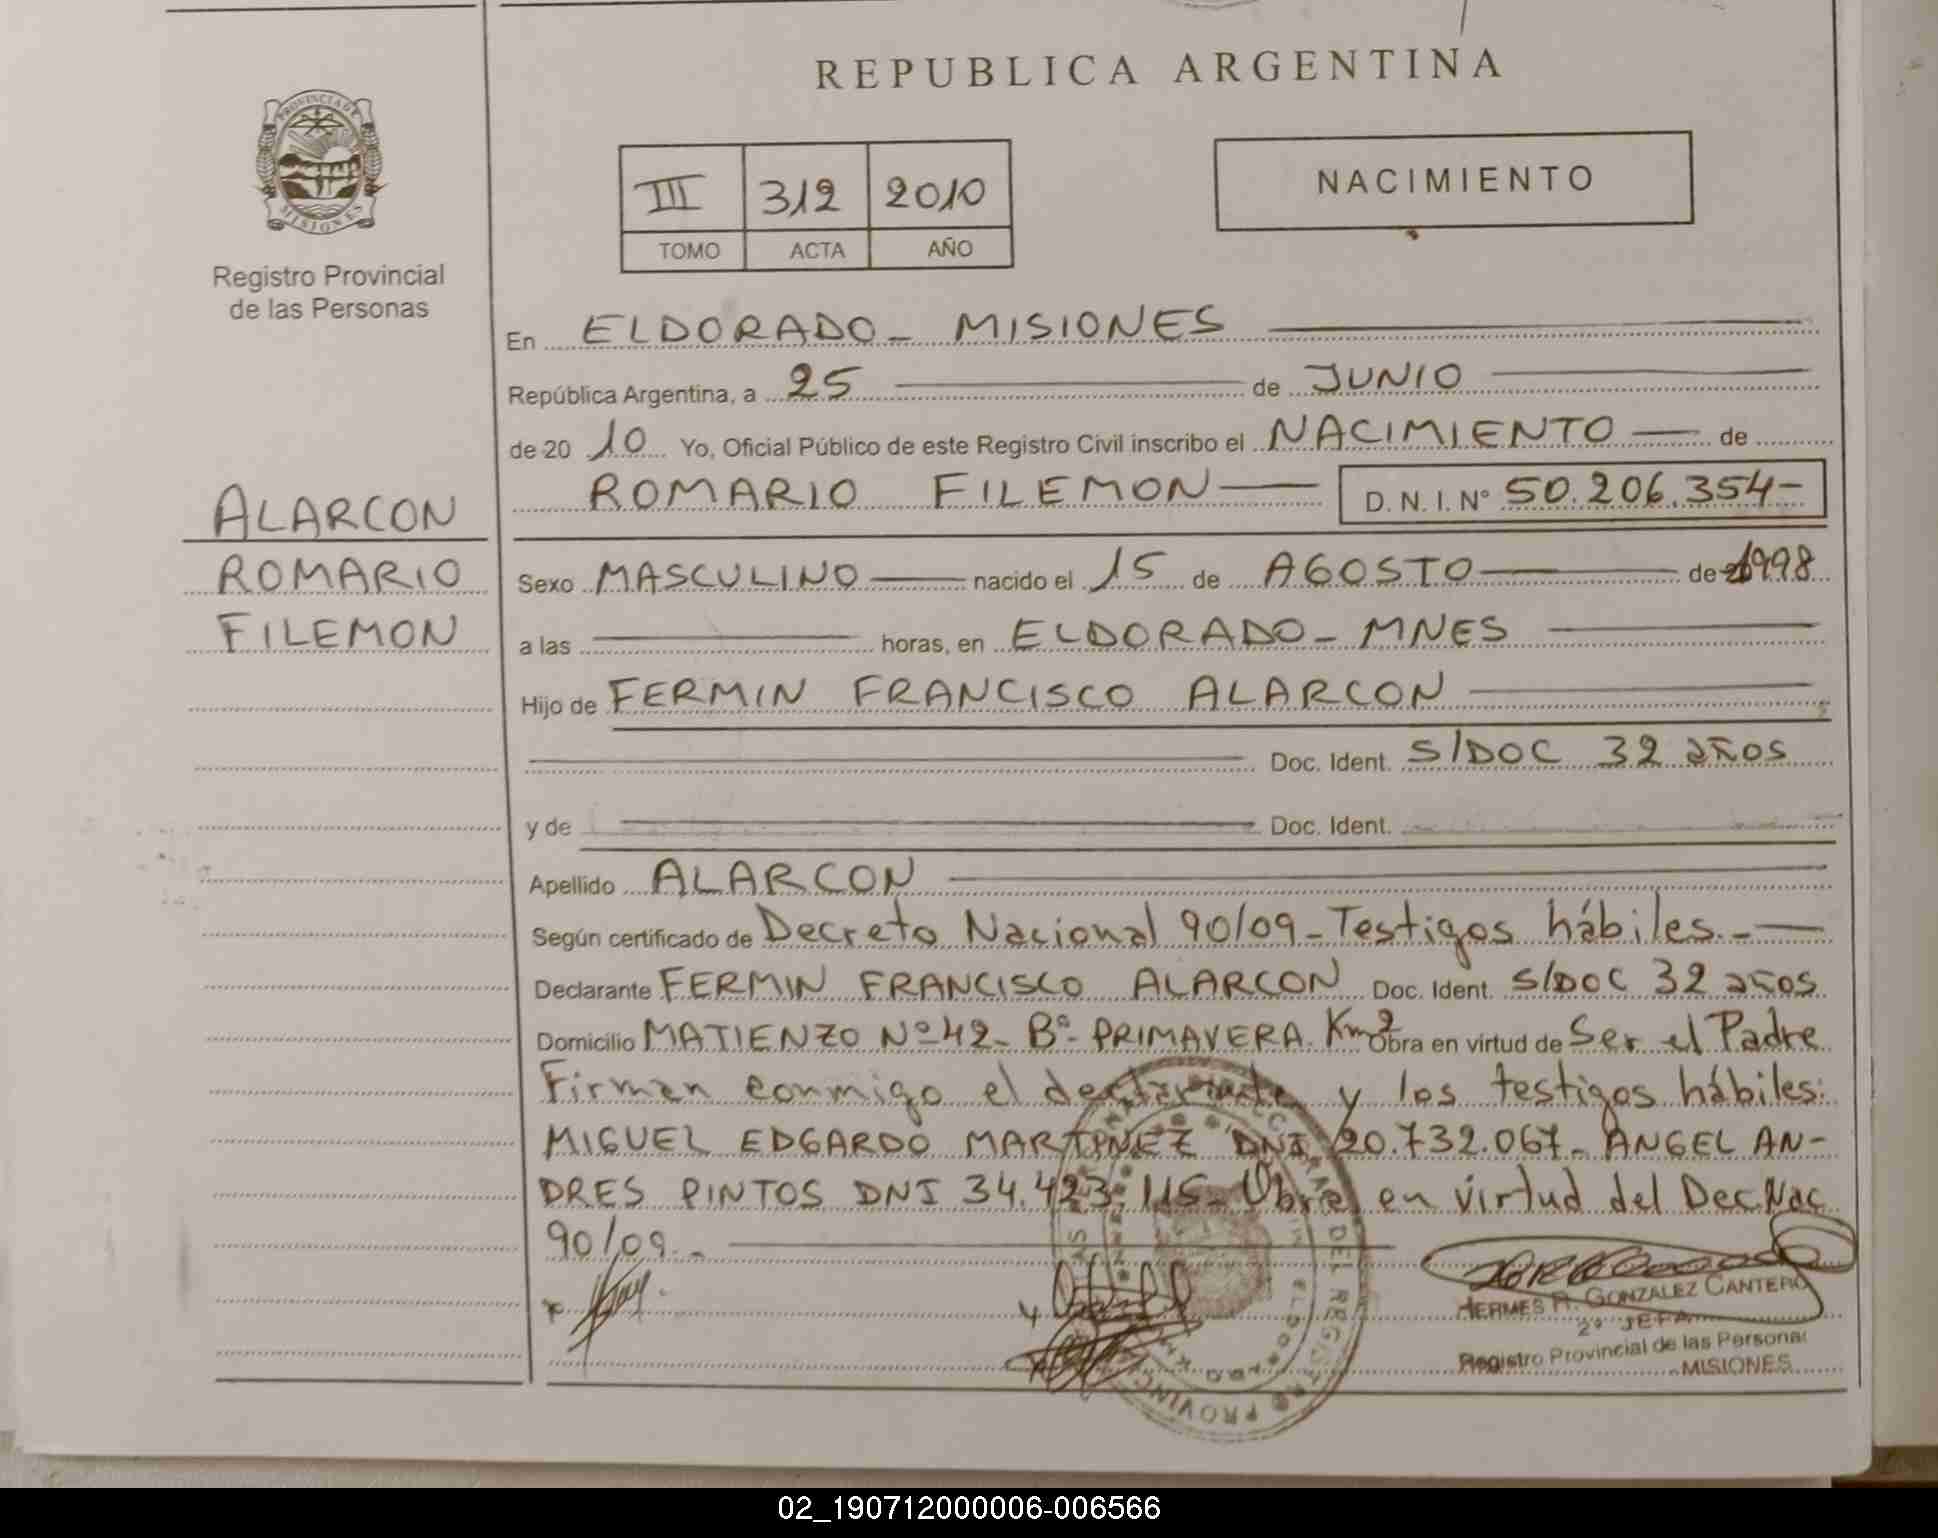 REPUBLICA ARGENTINA
PROVINCIA DE
MISIONES
Registro Provincial
de las Personas
III 312 2010
TOMO ACTA AÑO
NACIMIENTO
En ELDORADO - MISIONES
República Argentina, a 25 de JUNIO
de 20 10 Yo, Oficial Público de este Registro Civil inscribo el NACIMIENTO de
ROMARIO FILEMON D. N. I. N° 50.206.354-
ALARCON
ROMARIO
FILEMON
Sexo MASCULINO nacido el 15 de AGOSTO de 1998
a las horas, en ELDORADO - MNES
Hijo de FERMIN FRANCISCO ALARCON
Doc. Ident. S/DOC 32 años
y de Doc. Ident.
Apellido ALARCON
Según certificado de Decreto Nacional 90/09 - Testigos hábiles.-
Declarante FERMIN FRANCISCO ALARCON Doc. Ident. S/DOC 32 años
Domicilio MATIENZO Nº 42 - Bº PRIMAVERA. Km 2 Obra en virtud de Ser el Padre
Firman conmigo el declarante y los testigos hábiles:
MIGUEL EDGARDO MARTINEZ DNI 20.732.067 - ANGEL AN-
DRES PINTOS DNI 34.423.115 - Obra en virtud del Dec. Nac
90/09.-
HERMES R. GONZALEZ CANTERO
2º JEFA
Registro Provincial de las Personas
MISIONES
02_190712000006-006566